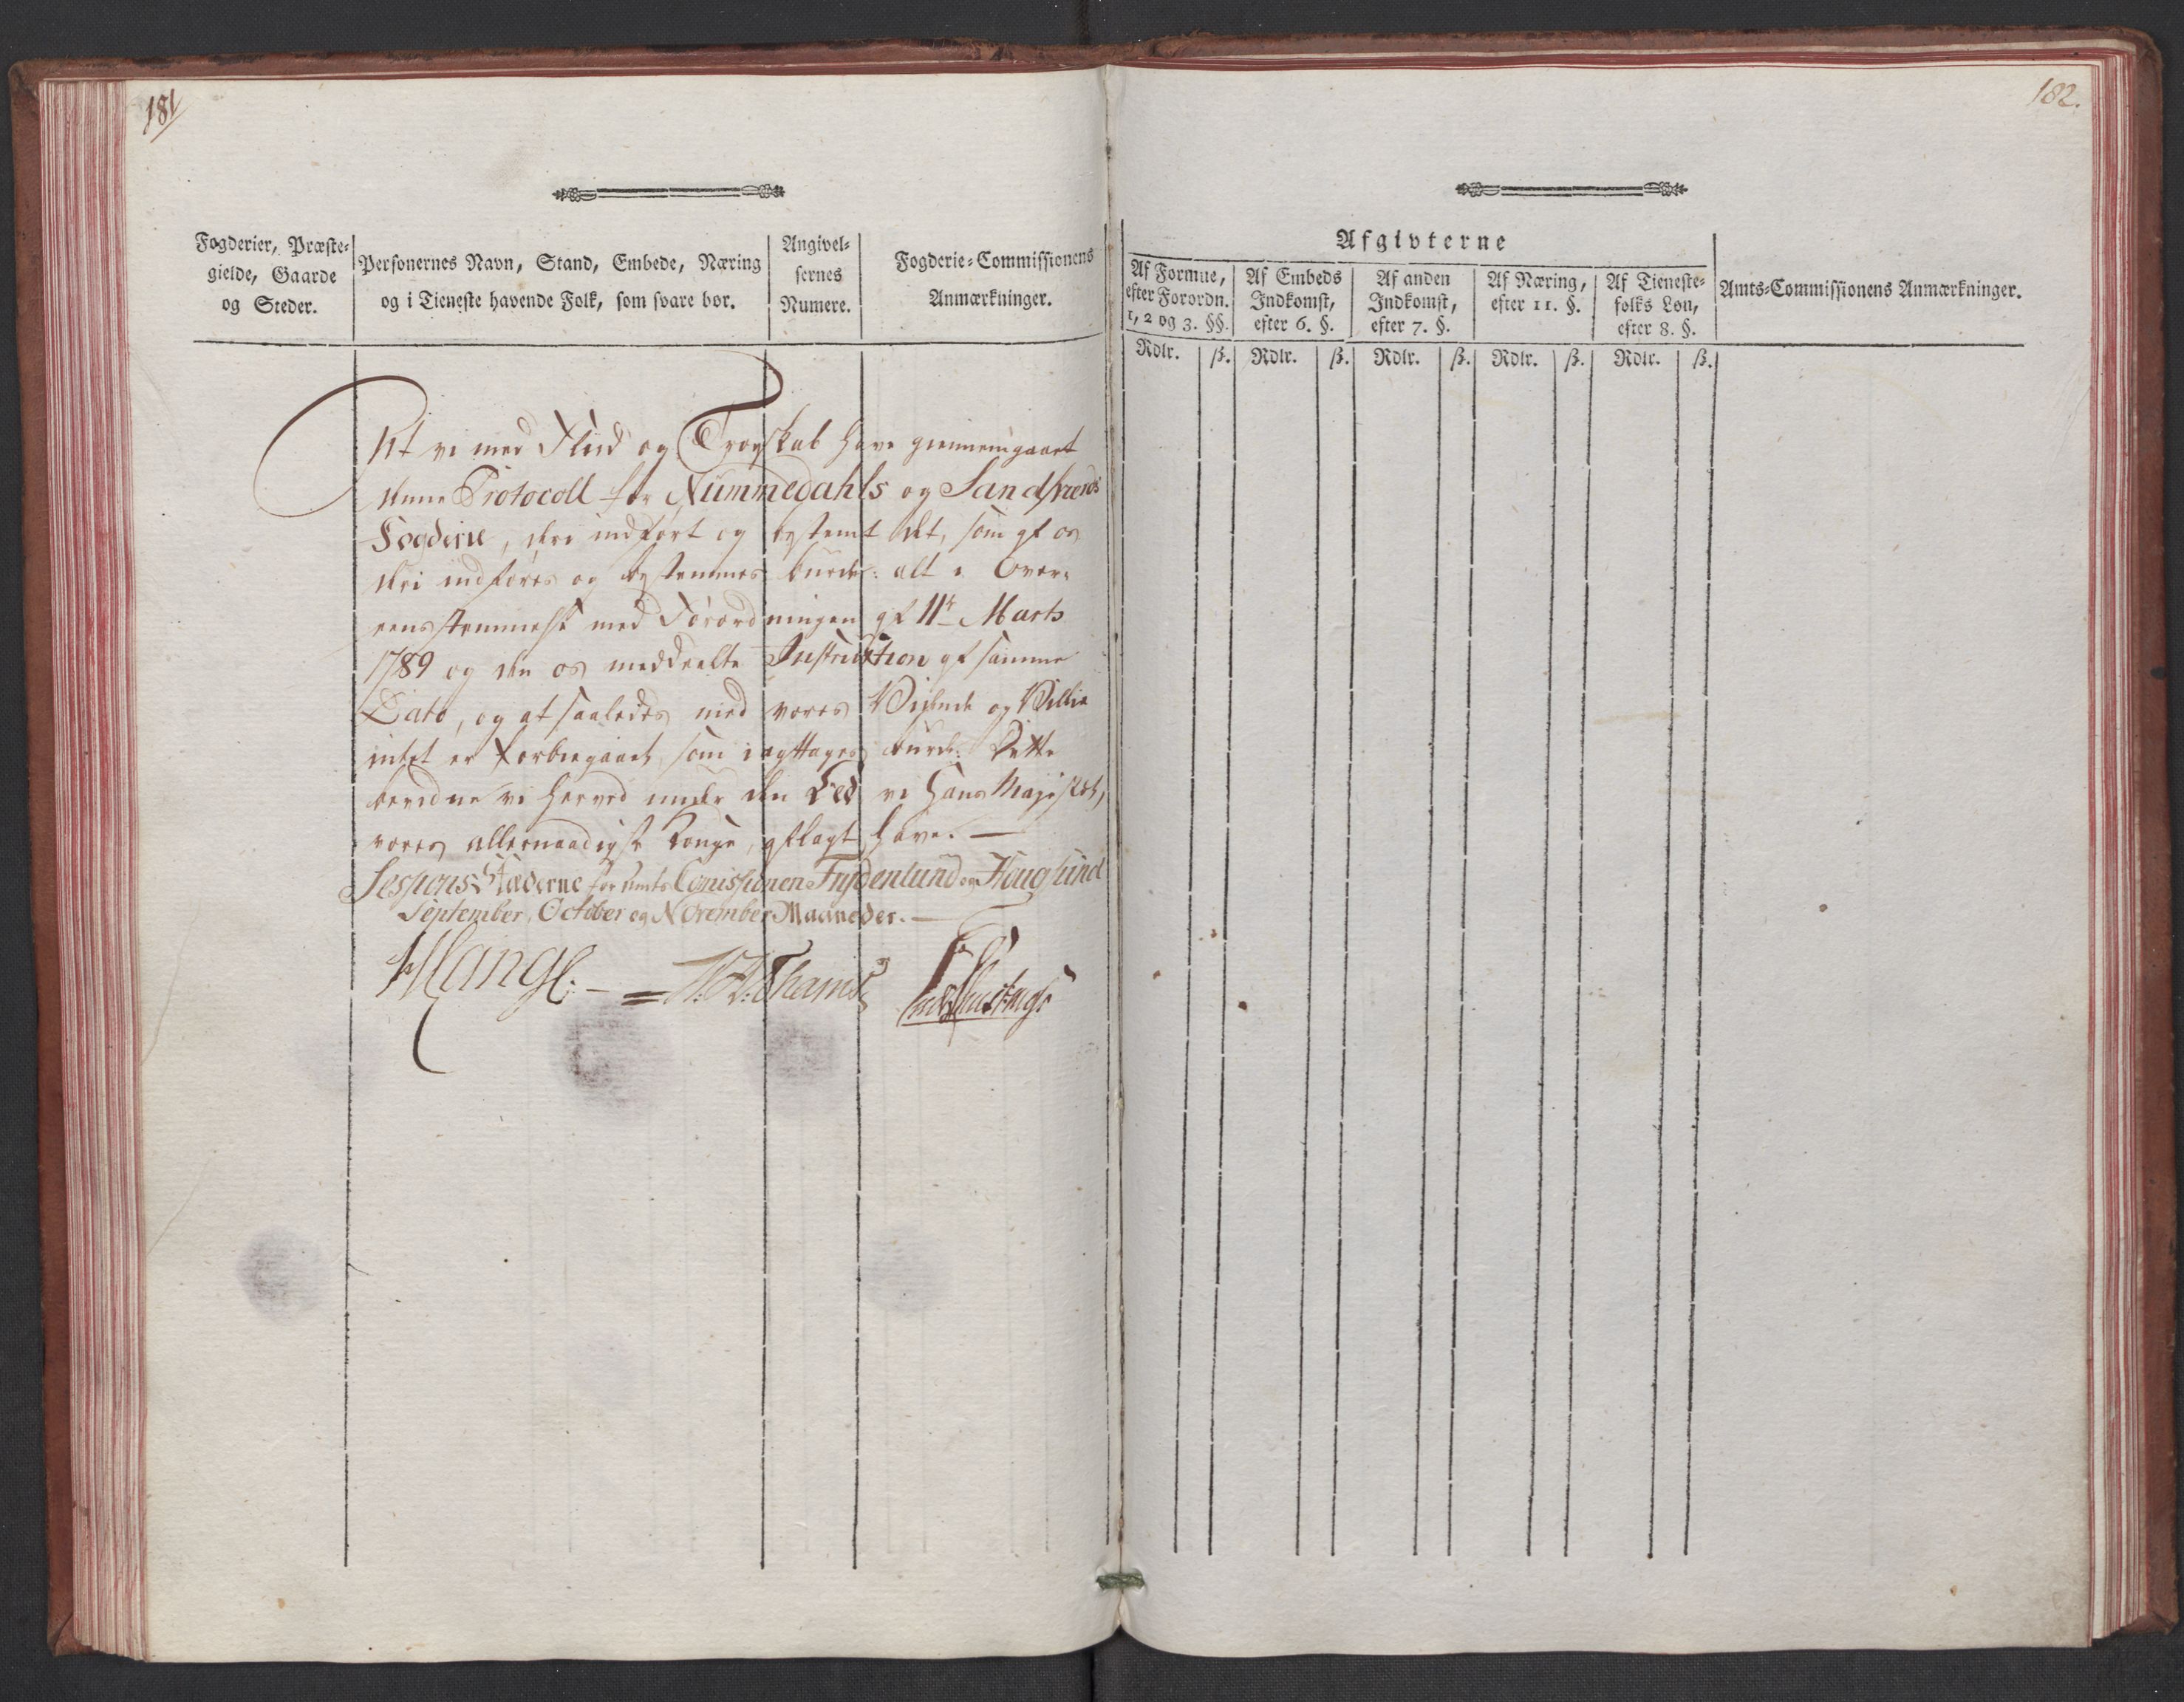 181
Fogderier, Præste-
gielde, Gaarde
og Steder.
Personernes Navn, Stand, Embede, Næring
og i Tieneste havende Folk, som svare bør.
Angivel-
sernes
Numere.
Fogderie-Commissionens
Anmærkninger.
At vi med Fliid og Troeskab have giennemgaaet
denne Protocoll for Nummedahls og Sandsværds
Fogderie, deri indført og bestemt det, som af os
deri indføres og bestemmes burde: alt i Over-
eensstemmelse med Forordningen af 11te Marts
1789 og den os meddeelte Instruction af samme
Dato, og at saaledes med vores Vidende og Villie
intet er forbiegaaet, som iagttages burde: Dette
bevidne vi herved under den Eed vi Hans Majestet,
vores allernaadigste Konge, aflagt have. —
Sessions Stæderne for Amts Comissionen Frydenlund og Houglund
September, October og November Maaneder. —
Lange. —
182.
Afgivterne
Af Formue,
efter Forordn.
1, 2 og 3. §§.
Af Embeds
Indkomst,
efter 6. §.
Af anden
Indkomst,
efter 7. §.
Af Næring,
efter 11. §.
Af Tieneste-
folks Løn,
efter 8. §.
Amts-Commissionens Anmærkninger.
Rdlr. ß. Rdlr. ß. Rdlr. ß. Rdlr. ß. Rdlr. ß.